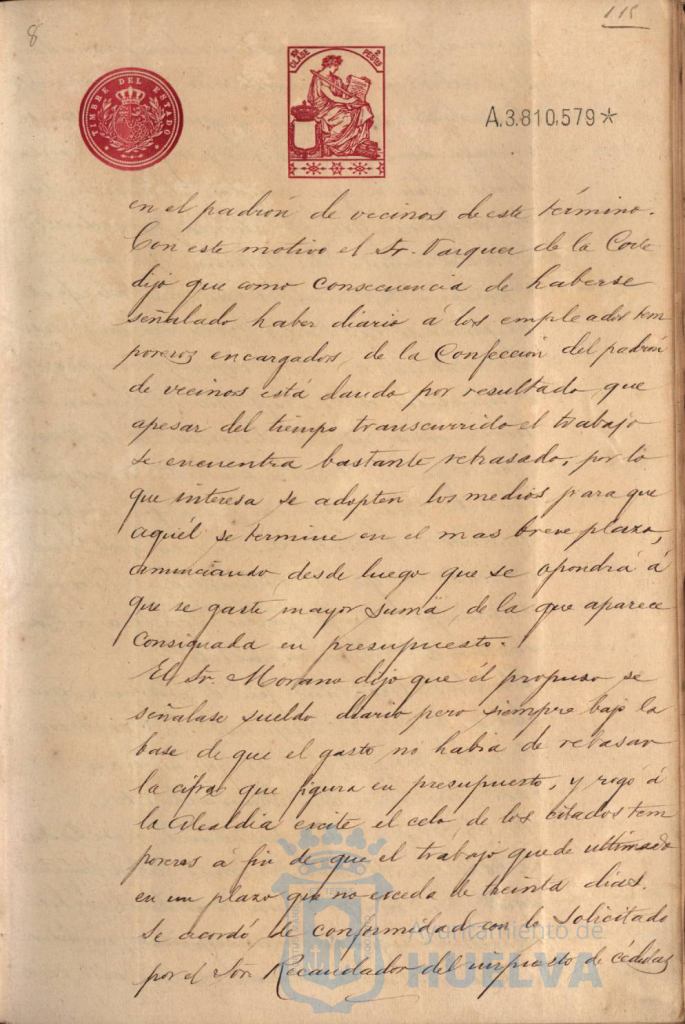 8
115
TIMBRE DEL ESTADO
CLASE
PESETAS
A.3.810,579*
en el padrón de vecinos de este término.
Con este motivo el Sr. Vazquez de la Corte
dijo que como consecuencia de haberse
señalado haber diario á los empleados tem
poreros encargados, de la Confección del padrón
de vecinos está dando por resultado que
apesar del tiempo transcurrido el trabajo
se encuentra bastante retrasado, por lo
que interesa se adopten los medios para que
aquél se termine en el mas breve plazo,
anunciando, desde luego que se opondrá á
que se gaste mayor suma, de la que aparece
consignada en presupuesto.
El Sr. Morano dijo que él propuso se
señalase sueldo diario pero siempre bajo la
base de que el gasto no habia de rebasar
la cifra que figura en presupuesto, y rogó á
la Alcaldia excite el celo de los citados tem
poreros á fin de que el trabajo quede ultimado
en un plazo que no exceda de treinta dias.
Se acordó de conformidad con lo solicitado
por el Sor. Recaudador del impuesto de cédulas
Ayuntamiento de
HUELVA